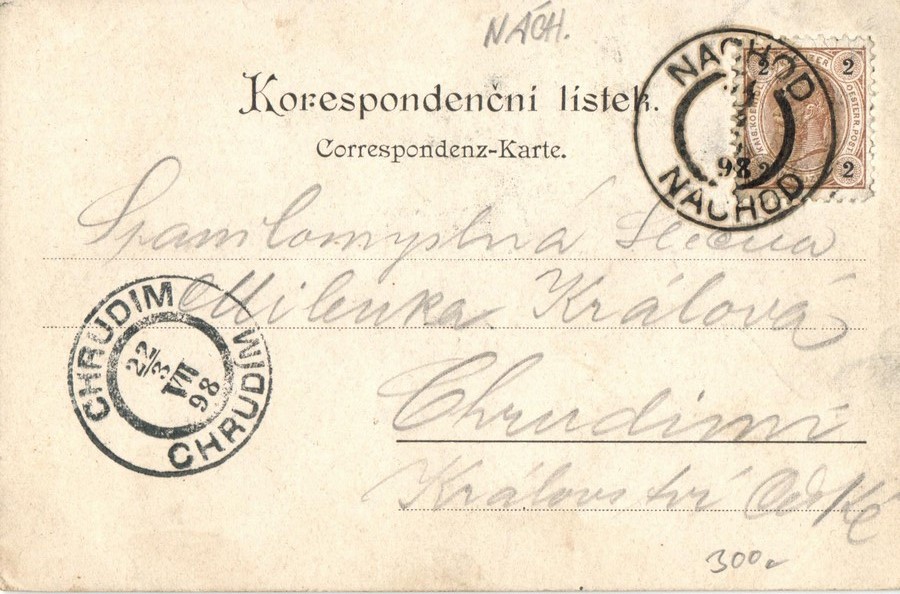 NÁCH.
NACHOD
98
NÁCHOD
2 2
2 2
Korespondenční lístek.
Correspondenz-Karte.
Slečna
Milenka Králová
CHRUDIM
22/3
VII
98
CHRUDIM
CHRUDIM
Chrudimi
Království
300